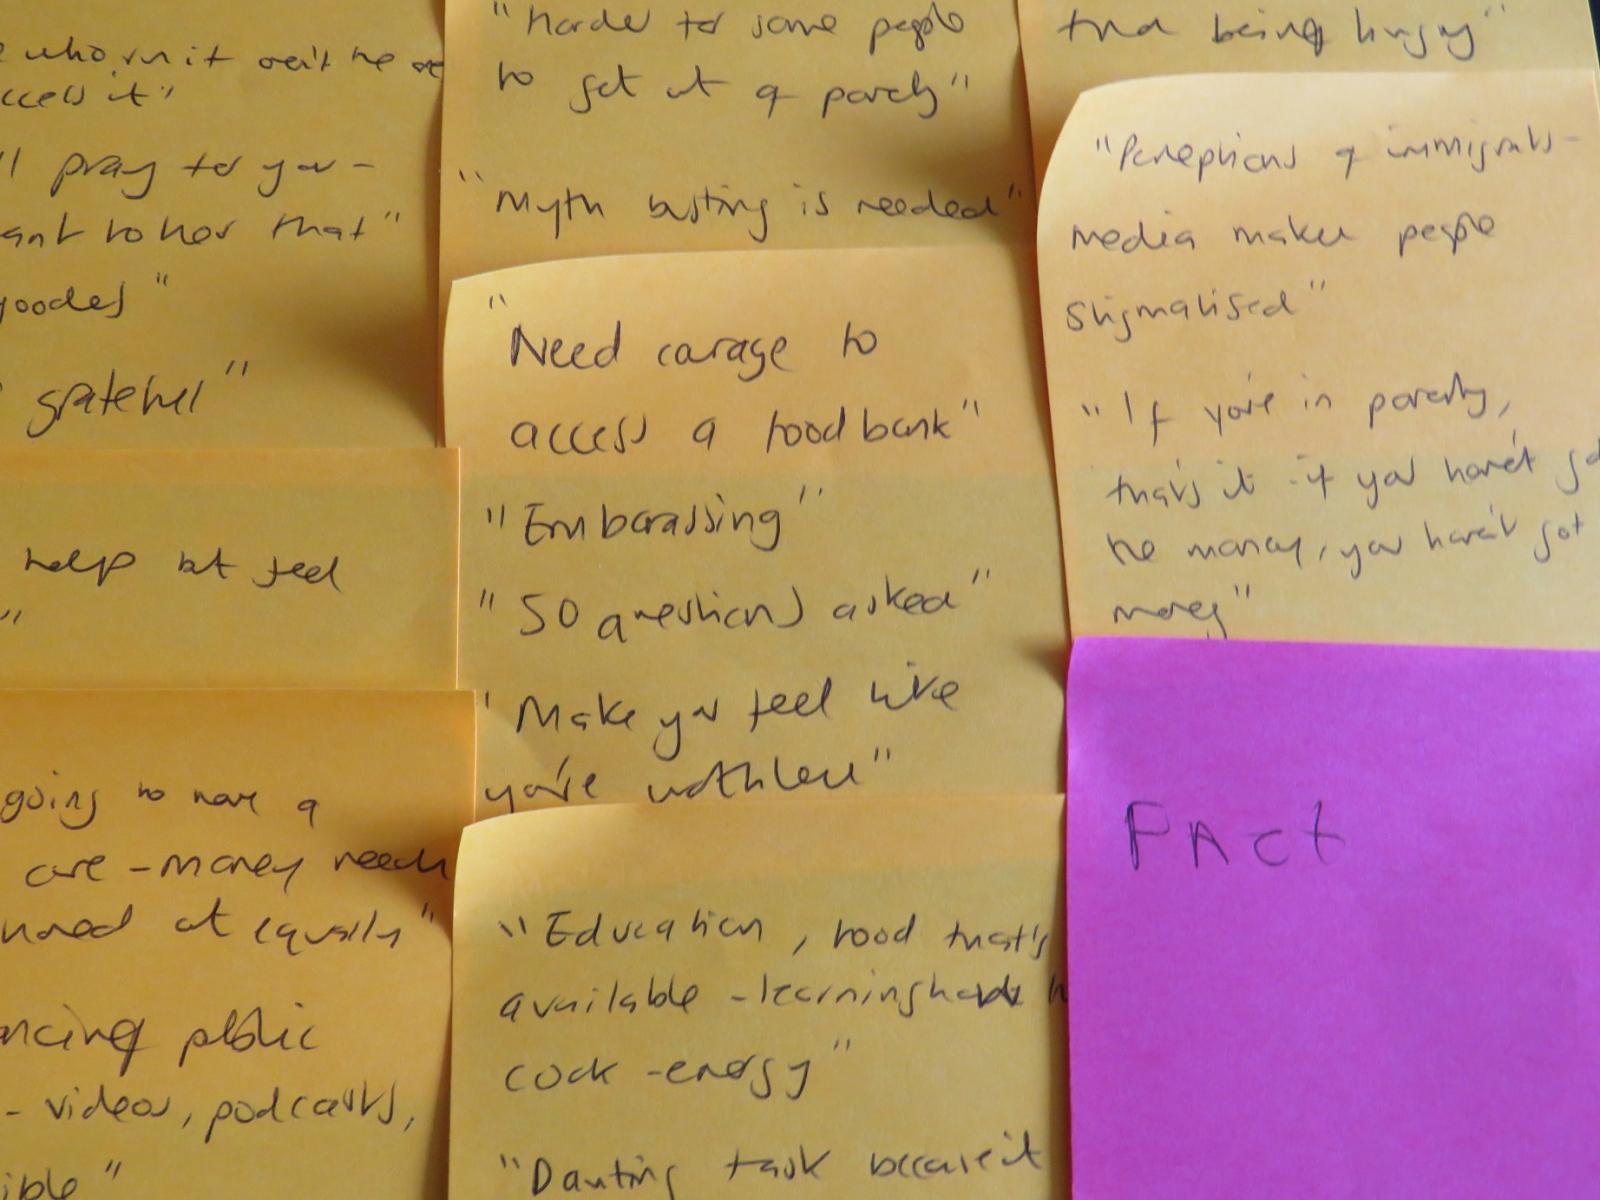 who run it aren't the
access it"
"I pray for you -
want to hear that"
goodies"
grateful"
help but feel
"
going to have a
care - money needs
out equally"
public
- videos, podcasts,
"
"harder for some people
to get out of poverty"
"Myth busting is needed"
"
Need courage to
access a food bank"
"Embarassing"
"50 questions asked"
"Make you feel like
you're worthless"
"Education, food that's
available - learning how to
cook - energy"
"Daunting task because it
than being hungry"
"Perceptions of immigrants -
media makes people
stigmatised"
"If you're in poverty,
that's it - if you haven't got
the money, you haven't got
money"
FAct